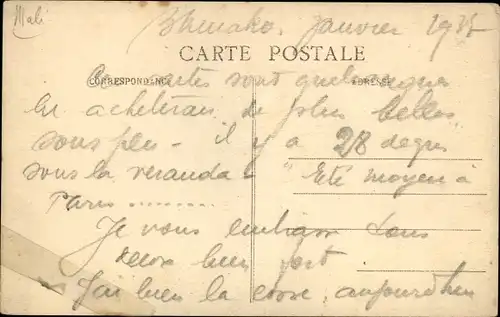 Mali
Bamako, Janvier
CARTE POSTALE
CORRESPONDANCE ADRESSE
cartes sont quelconques
achèterai de plus belles
sous peu - il y a 28 degrés
sous la véranda - "Eté moyen à
Paris .........
Je vous embrasse tous
deux bien fort
J'ai bien la aujourd'hui